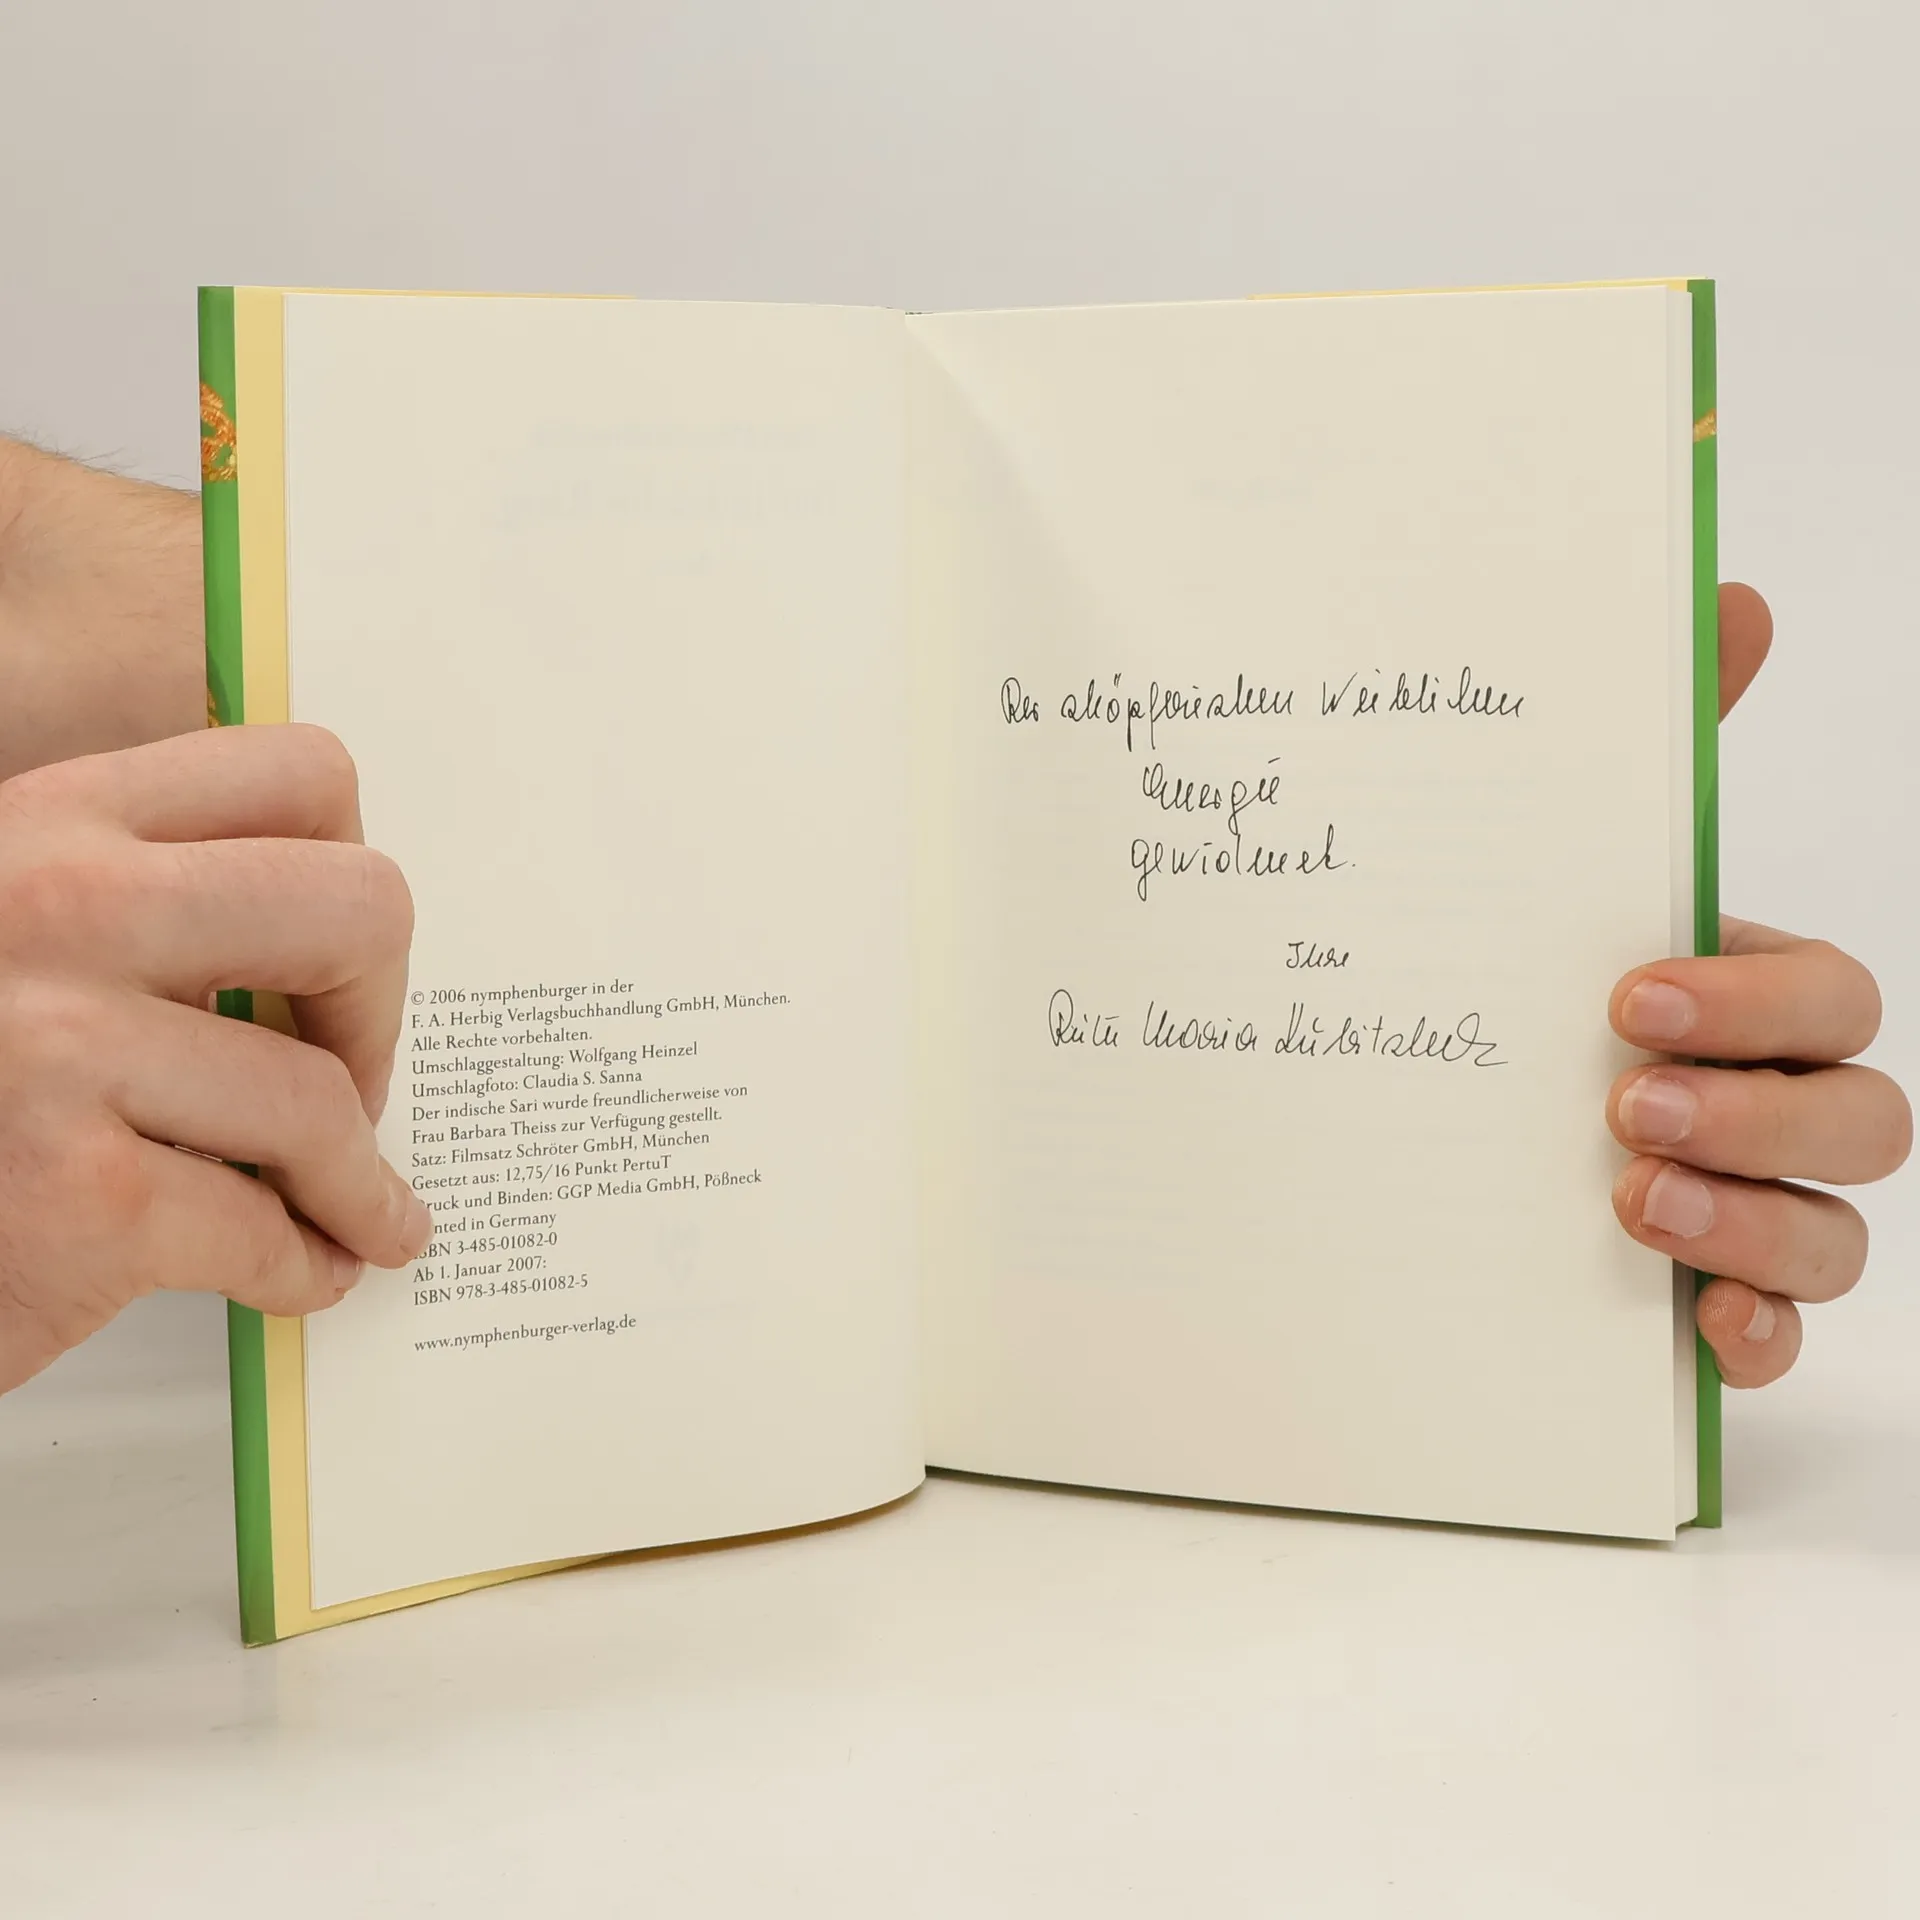 © 2006 nymphenburger in der
F. A. Herbig Verlagsbuchhandlung GmbH, München.
Alle Rechte vorbehalten.
Umschlaggestaltung: Wolfgang Heinzel
Umschlagfoto: Claudia S. Sanna
Der indische Sari wurde freundlicherweise von
Frau Barbara Theiss zur Verfügung gestellt.
Satz: Filmsatz Schröter GmbH, München
Gesetzt aus: 12,75/16 Punkt PertuT
ruck und Binden: GGP Media GmbH, Pößneck
nted in Germany
SBN 3-485-01082-0
Ab 1. Januar 2007:
ISBN 978-3-485-01082-5
www.nymphenburger-verlag.de
Der schöpferischen Weiblichen
Energie
gewidmet.
Ihre
Maria